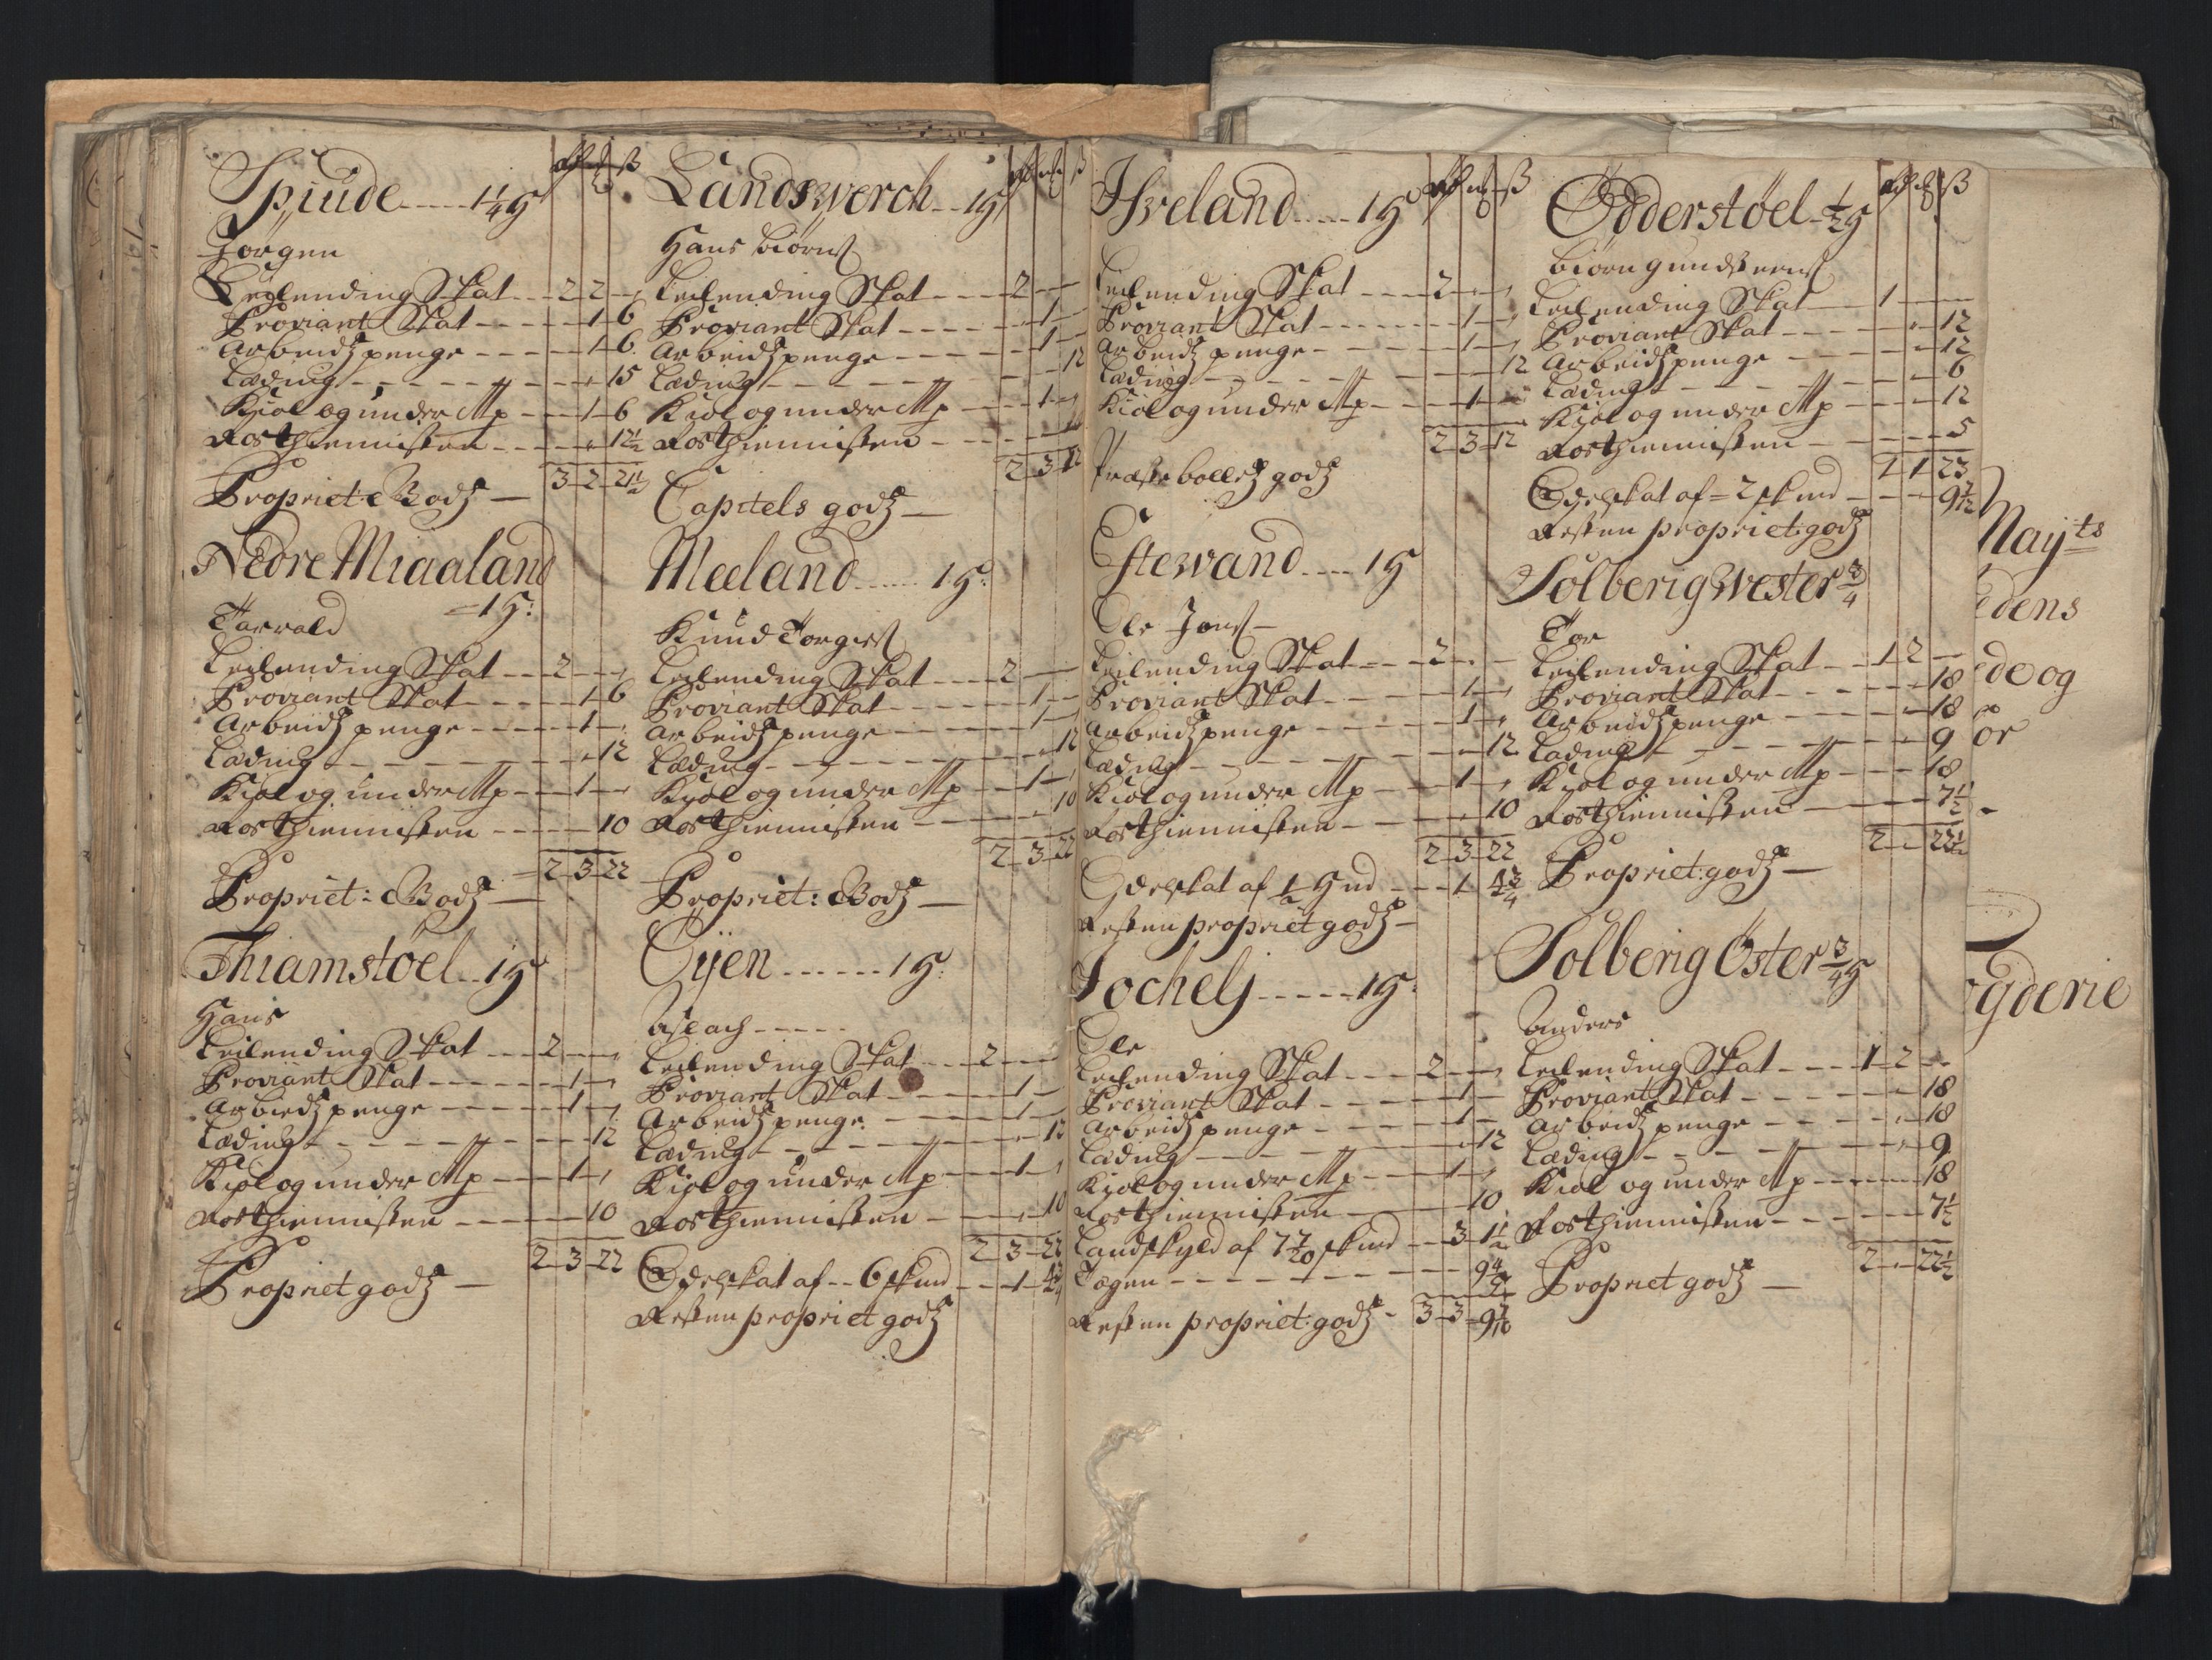 Spiude ---- 1 1/4 H
Jörgen
Leilending Skat -- 2 - 2 -
Proviant Skat ---- 1 - 6
Arbeidspenge --- 1 - 6
Leding ---- 15
Kiöl og under Mp -- 1 - 6
Rosthiennisten --- 12 1/2
3 - 2 - 21 1/2
Propriet: Godz —
Nedre Miaaland
= 1 H:
Tarrald
Leilending Skat -- 2 --
Proviant Skat ---- 1 - 6
Arbeidspenge ---- 1 -
Leding ---- 12
Kiöl og under Mp -- 1 -
Rosthiennisten ---- 10
= 2 - 3 - 22
Propriet: Godz —
Thiamstöel -- 1 H
Hans
Leilending Skat --- 2 --
Proviant Skat ----- 1 -
Arbiedspenge ---- 1 -
Leding ---- 12
Kiöl og under Mp --- 1 -
Rosthiennisten ---- 10
2 - 3 - 22
Propriet godz —
Landswerch -- 1 H
Hans Biörns
Leilending Skat ---- 2 --
Proviant Skat ----- 1 -
Arbeidspenge ---- 1 -
Leding ---- 12
Kiöl og under Mp --- 1 -
Rosthiennisten ----
2 - 3 - 12
Capitels godz —
Meeland ---- 1 H:
Knud Torgers
Leilending Skat ---- 2 --
Proviant Skat ----- 1 -
Arbeidspenge ---- 1 -
Leding ---- 12
Kiöl og under Mp --- 1 -
Rosthiennisten ---- 10
2 - 3 - 22
Propriet: Godz —
Öyen ------ 1 H:
Aslach -----
Leilending Skat --- 2 --
Proviant Skat ---- 1 -
Arbeidspenge ---- 1 -
Leding ---- 12
Kiöl og under Mp --- 1 -
Rosthiennisten ---- 10
2 - 3 - 22
Odelskat af -- 6 skind -- 1 - 4 3/4
Resten propriet godz
Hveland ---- 1 H
Leilending Skat ---- 2 --
Proviant Skat ------ 1 -
Arbeidspenge ---- 1 -
Leding ---- 12
Kiöl og under Mp --- 1 -
2 - 3 - 12
Præstebollets godz
Estewand ---- 1 H
Ole Jons —
Leilending Skat --- 2 --
Proviant Skat ---- 1 -
Arbeidspenge ---- 1 -
Leding ---- 12
Kiöl og under Mp --- 1 -
Rosthiennisten ---- 10
2 - 3 - 22
Odelskat af 1/2 Hud --- 1 4 3/4
Resten propriet godz —
Jochelj ----- 1 H:
Ole
Leilending Skat --- 2 --
Proviant Skat ---- 1 -
Arbeidspenge ---- 1 -
Leding ---- 12
Kiöl og under Mp --- 1 -
Rosthiennisten ---- 10
Landskyld af 7 7/20 skind -- 3 - 1 1/2
Tagen ----
Resten propriet: godz - 3 - 3 - 9 7/10
Ödderstöel - 1/2 H
Biörn Gundsteens
Leilending Skat -- 1 --
Proviant Skat ---- 12
Arbeidspenge ---- 12
Leding ---- 6
Kiöl og under Mp --- 12
Rosthiennisten ---- 5
1 - 1 - 23
Odelskat af = 2 skind --- 9 7/12
Resten propriet: godz
Solberig Wester 3/4
Tor
Leilending Skat -- 1 - 2 -
Proviant Skat ---- 18
Arbeidspenge ---- 18
Leding ---- 9
Kiöl og under Mp --- 18
Rosthiennisten ---- 7 1/2
2 - - 22 1/2
Propriet: godz —
Solberig Öster 3/4 H
Anders
Leilending Skat --- 1 - 2 -
Proviant Skat ---- 18
Arbeidspenge ---- 18
Leding ---- 9
Kiöl og under Mp ---- 18
Rosthiennisten ---- 7 1/2
2 - - 22 1/2
Propriet godz —
Mayts
edens
de og
or
gderie